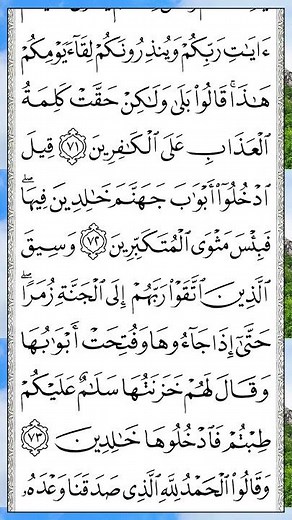 ءَايَٰتِ رَبِّكُمْ وَيُنذِرُونَكُمْ لِقَآءَ يَوْمِكُمْ
هَٰذَا ۚ قَالُوا۟ بَلَىٰ وَلَٰكِنْ حَقَّتْ كَلِمَةُ
ٱلْعَذَابِ عَلَى ٱلْكَٰفِرِينَ ﴿٧١﴾ قِيلَ
ٱدْخُلُوٓا۟ أَبْوَٰبَ جَهَنَّمَ خَٰلِدِينَ فِيهَا ۖ
فَبِئْسَ مَثْوَى ٱلْمُتَكَبِّرِينَ ﴿٧٢﴾ وَسِيقَ
ٱلَّذِينَ ٱتَّقَوْا۟ رَبَّهُمْ إِلَى ٱلْجَنَّةِ زُمَرًا ۖ
حَتَّىٰٓ إِذَا جَآءُوهَا وَفُتِحَتْ أَبْوَٰبُهَا
وَقَالَ لَهُمْ خَزَنَتُهَا سَلَٰمٌ عَلَيْكُمْ
طِبْتُمْ فَٱدْخُلُوهَا خَٰلِدِينَ ﴿٧٣﴾
وَقَالُوا۟ ٱلْحَمْدُ لِلَّهِ ٱلَّذِى صَدَقَنَا وَعْدَهُۥ